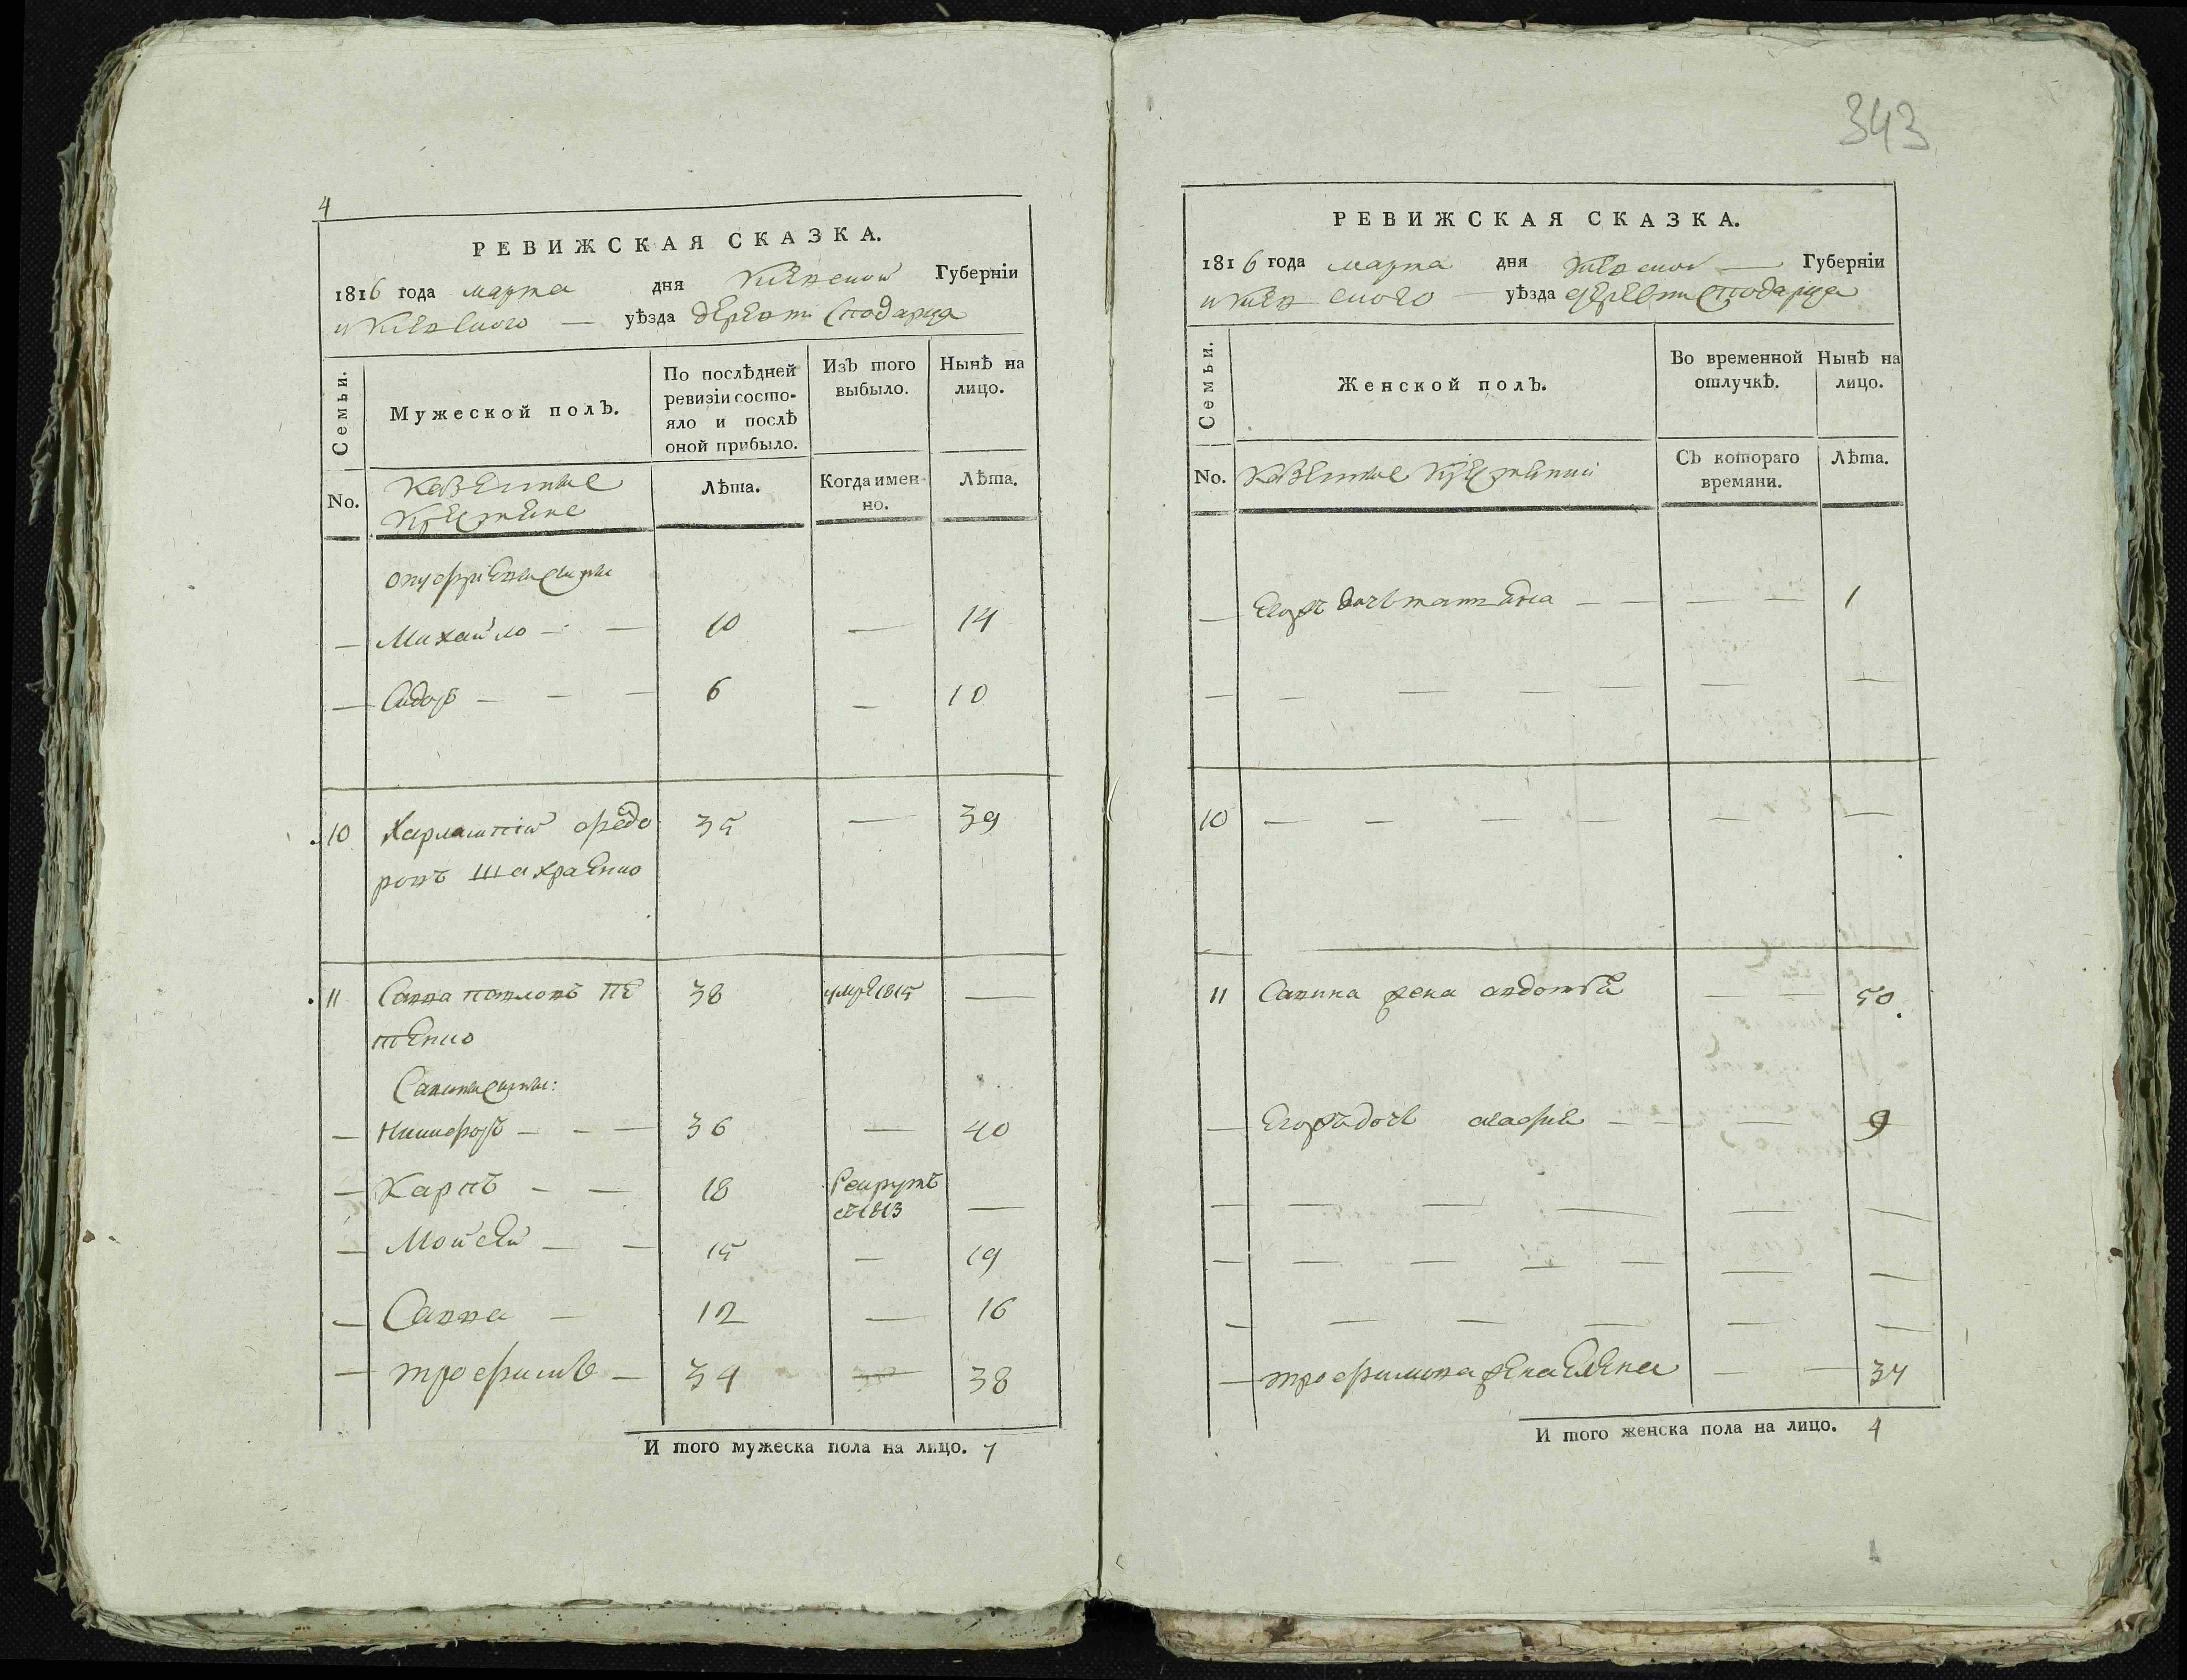 343
4
РЕВИЖСКАЯ СКАЗКА.
1816 года марта дня Кіевской Губерніи
и Кіевского — уѣзда деревни Сподарца
Семьи.
Мужеской полЪ.
По послѣдней ревизіи состояло и послѣ оной прибыло.
ИзЪ того выбыло.
НынѣЪ на лицо.
No.
Казенные
Крестяне
Лѣта.
Когда имен-
но.
Лѣта.
онуфріевы сыны
— Михайло — — 10 — 14
— Сидоръ — — — 6 — 10
10 Харлампій Федо 35 — 39
ровъ Шахраенко
11 Савва павловъ ПЕ 38 умре 1815 —
тенко
Савины сыны:
— Никифоръ — — — 36 — 40
— Карпъ — — 18 Рекрутъ
съ 1813 —
— Мойсей — — 15 — 19
— Савва — 12 — 16
— трофимъ — 34 — 38
И того мужеска пола на лицо. 7
РЕВИЖСКАЯ СКАЗКА.
1816 года марта дня Кіевской — Губерніи
и Кіевского — уѣзда деревни Сподарца
Семьи.
Женской полЪ.
Во временной
отлучкѣ.
Нынѣ на
лицо.
No.
Казенные Крестянки
СЪ котораго
времяни.
Лѣта.
— Егожъ дочь татяна — — — — 1
— — — — — — —
10 — — — — — —
11 Савина жена авдотья — — 50
— Егожъ дочь мафия — — — 9
— — — — — —
— — — — — — —
— — — — — —
— трофимова жена Елена — — 34
И того женска пола на лицо. 4